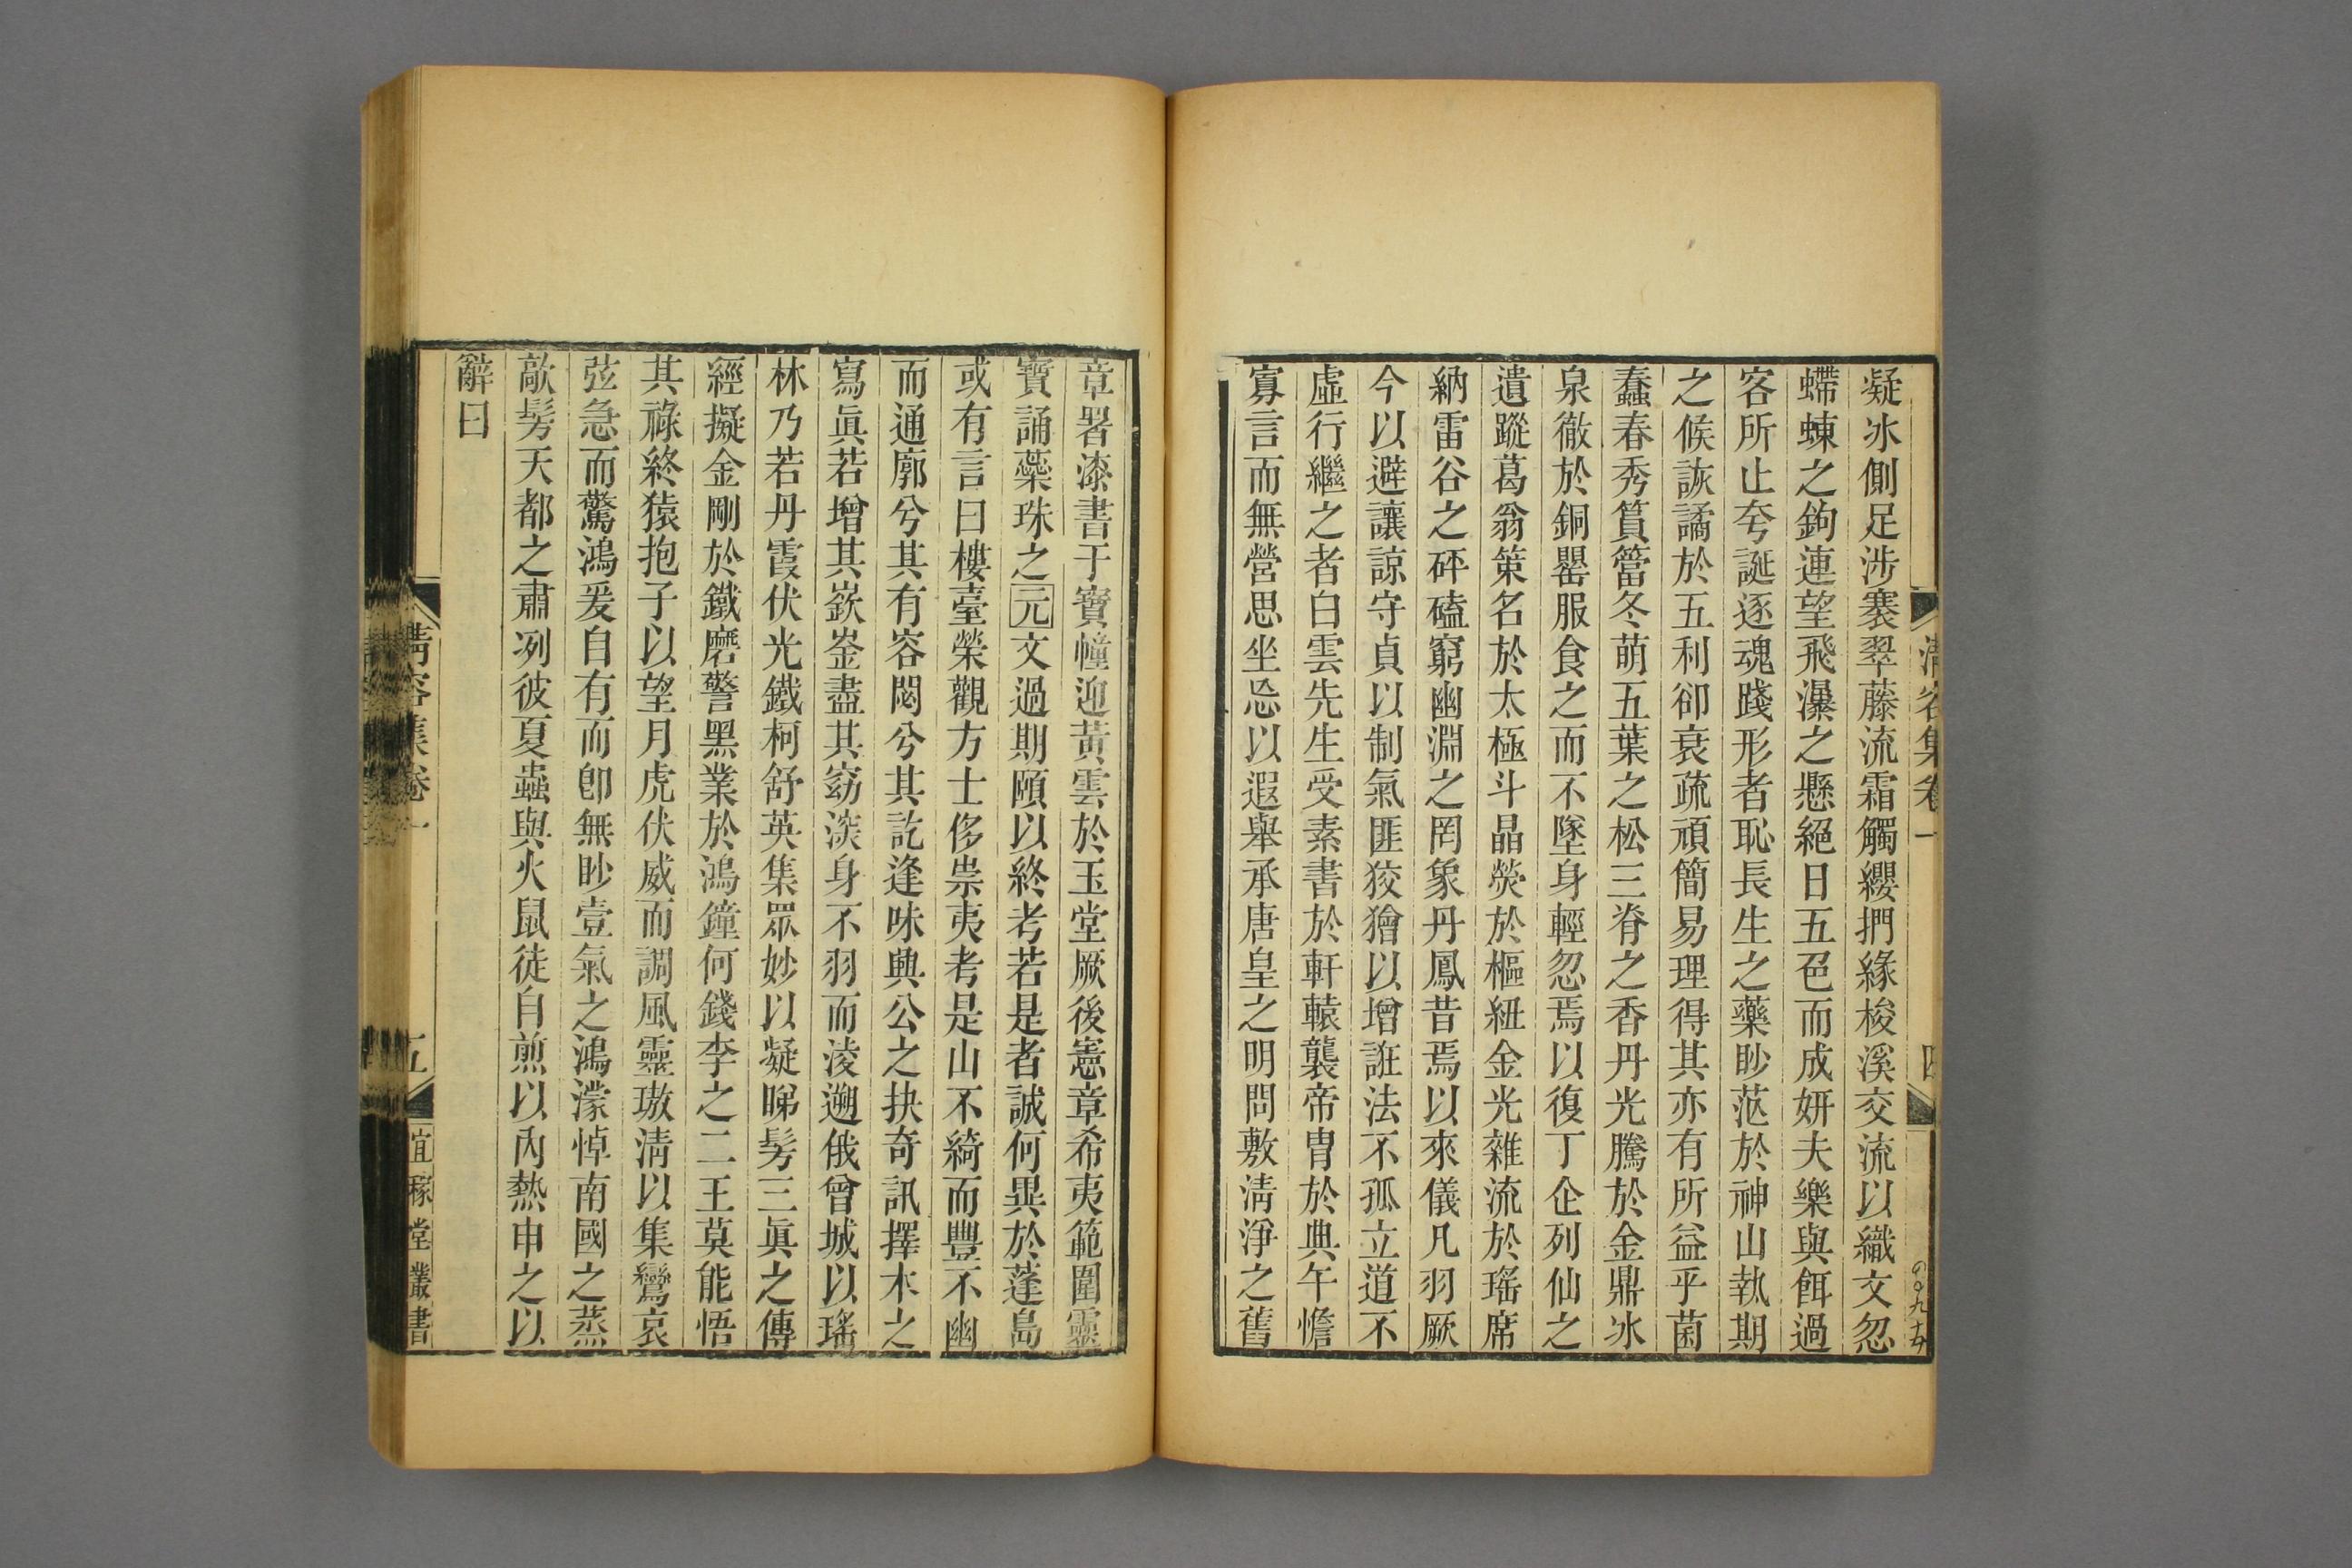 清容集卷一
四
凝冰側足涉褰翠藤流霜觸纓捫緣梭溪交流以織文忽
螮蝀之鉤連望飛瀑之懸絕日五色而成姸夫樂與餌過
客所止夸誕逐魂踐形者恥長生之藥眇范於神山執期
之候詼譎於五利卻衰疏頑簡易理得其亦有所益乎菌
蠢春秀篔簹冬萌五葉之松三脊之香丹光騰於金鼎冰
泉徹於銅罌服食之而不墜身輕忽焉以復丁企列仙之
遺蹤葛翁策名於太極斗晶熒於樞紐金光雜流於瑤席
納雷谷之砰磕窮幽淵之罔象丹鳳昔焉以來儀凡羽厥
今以避讓諒守貞以制氣匪狡獪以增誑法不孤立道不
虛行繼之者白雲先生受素書於軒轅襲帝胄於典午憺
寡言而無營思坐忘以遐舉承唐皇之明問敷淸淨之舊
章署漆書于寶幢迎黃雲於玉堂厥後憲章希夷範圍靈
寶誦蘂珠之元文過期頤以終考若是者誠何異於蓬島
或有言曰樓臺榮觀方士侈祟夷考是山不綺而豐不幽
而通廓兮其有容閟兮其訖逢味興公之抉奇訊擇木之
寫眞若增其嶔崟盡其窈溁身不羽而淩遡俄曾城以瑤
林乃若丹霞伏光鐵柯舒英集眾妙以凝睇髣三眞之傳
經擬金剛於鐵磨警黑業於鴻鐘何錢李之二王莫能悟
其祿終猿抱子以望月虎伏威而調風靈璈淸以集鸞哀
弦急而驚鴻爰自有而卽無眇壹氣之鴻濛悼南國之蒸
歊髣天都之肅冽彼夏蟲與火鼠徒自煎以內熱申之以
辭曰
清容集卷一
五
宜稼堂叢書